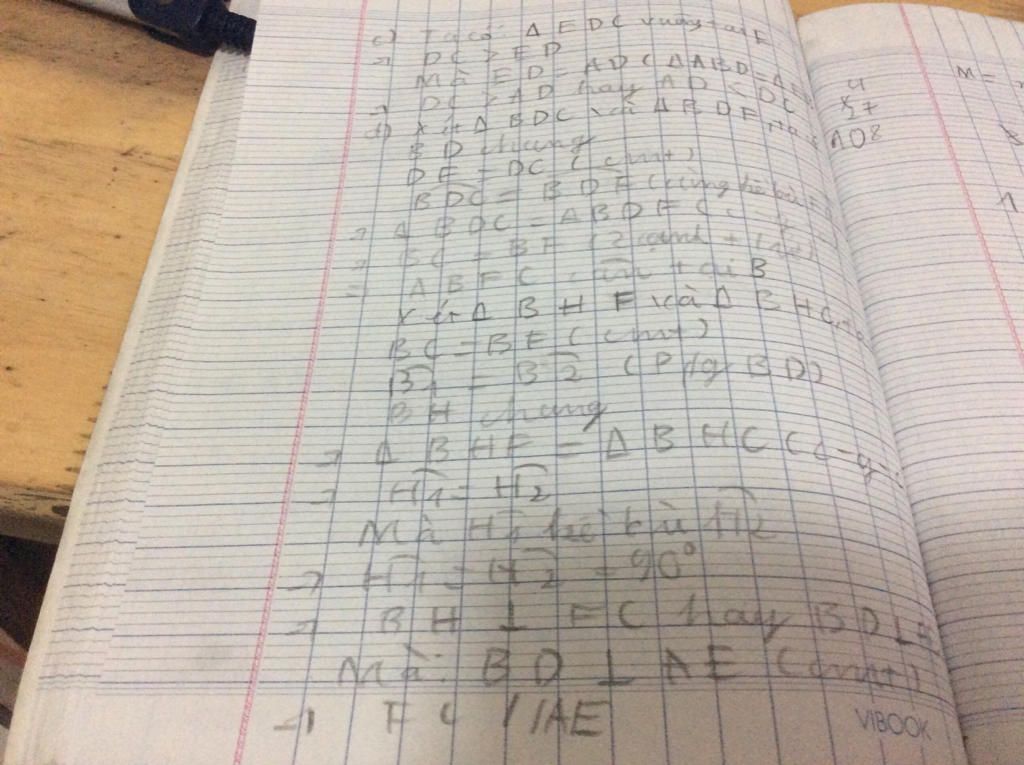 c) Ta có: Δ EDC vuông tại E
→ DC > ED
Mà ED = AD ( Δ ABD = Δ
→ DC > AD hay AD < DC
d) Xét Δ BDC và Δ BDF, ta có
BD chung
DF = DC (cmt)
BDC = BDF (cùng
→ Δ BDC = Δ BDF (
→ BC = BF (2 cạnh
→ Δ BFC cân tại B
Xét Δ BHF và Δ BHC,
BC = BF (cmt)
B1 = B2 (P/g BD)
BH chung
→ Δ BHF = Δ BHC (c-g-
→ H1 = H2
Mà H1 kề bù H2
→ H1 = H2 = 90°
→ BH ⊥ FC hay BD ⊥
Mà: BD ⊥ AE (cmt)
→ FC // AE
VIBOOK
4
27
108
M =